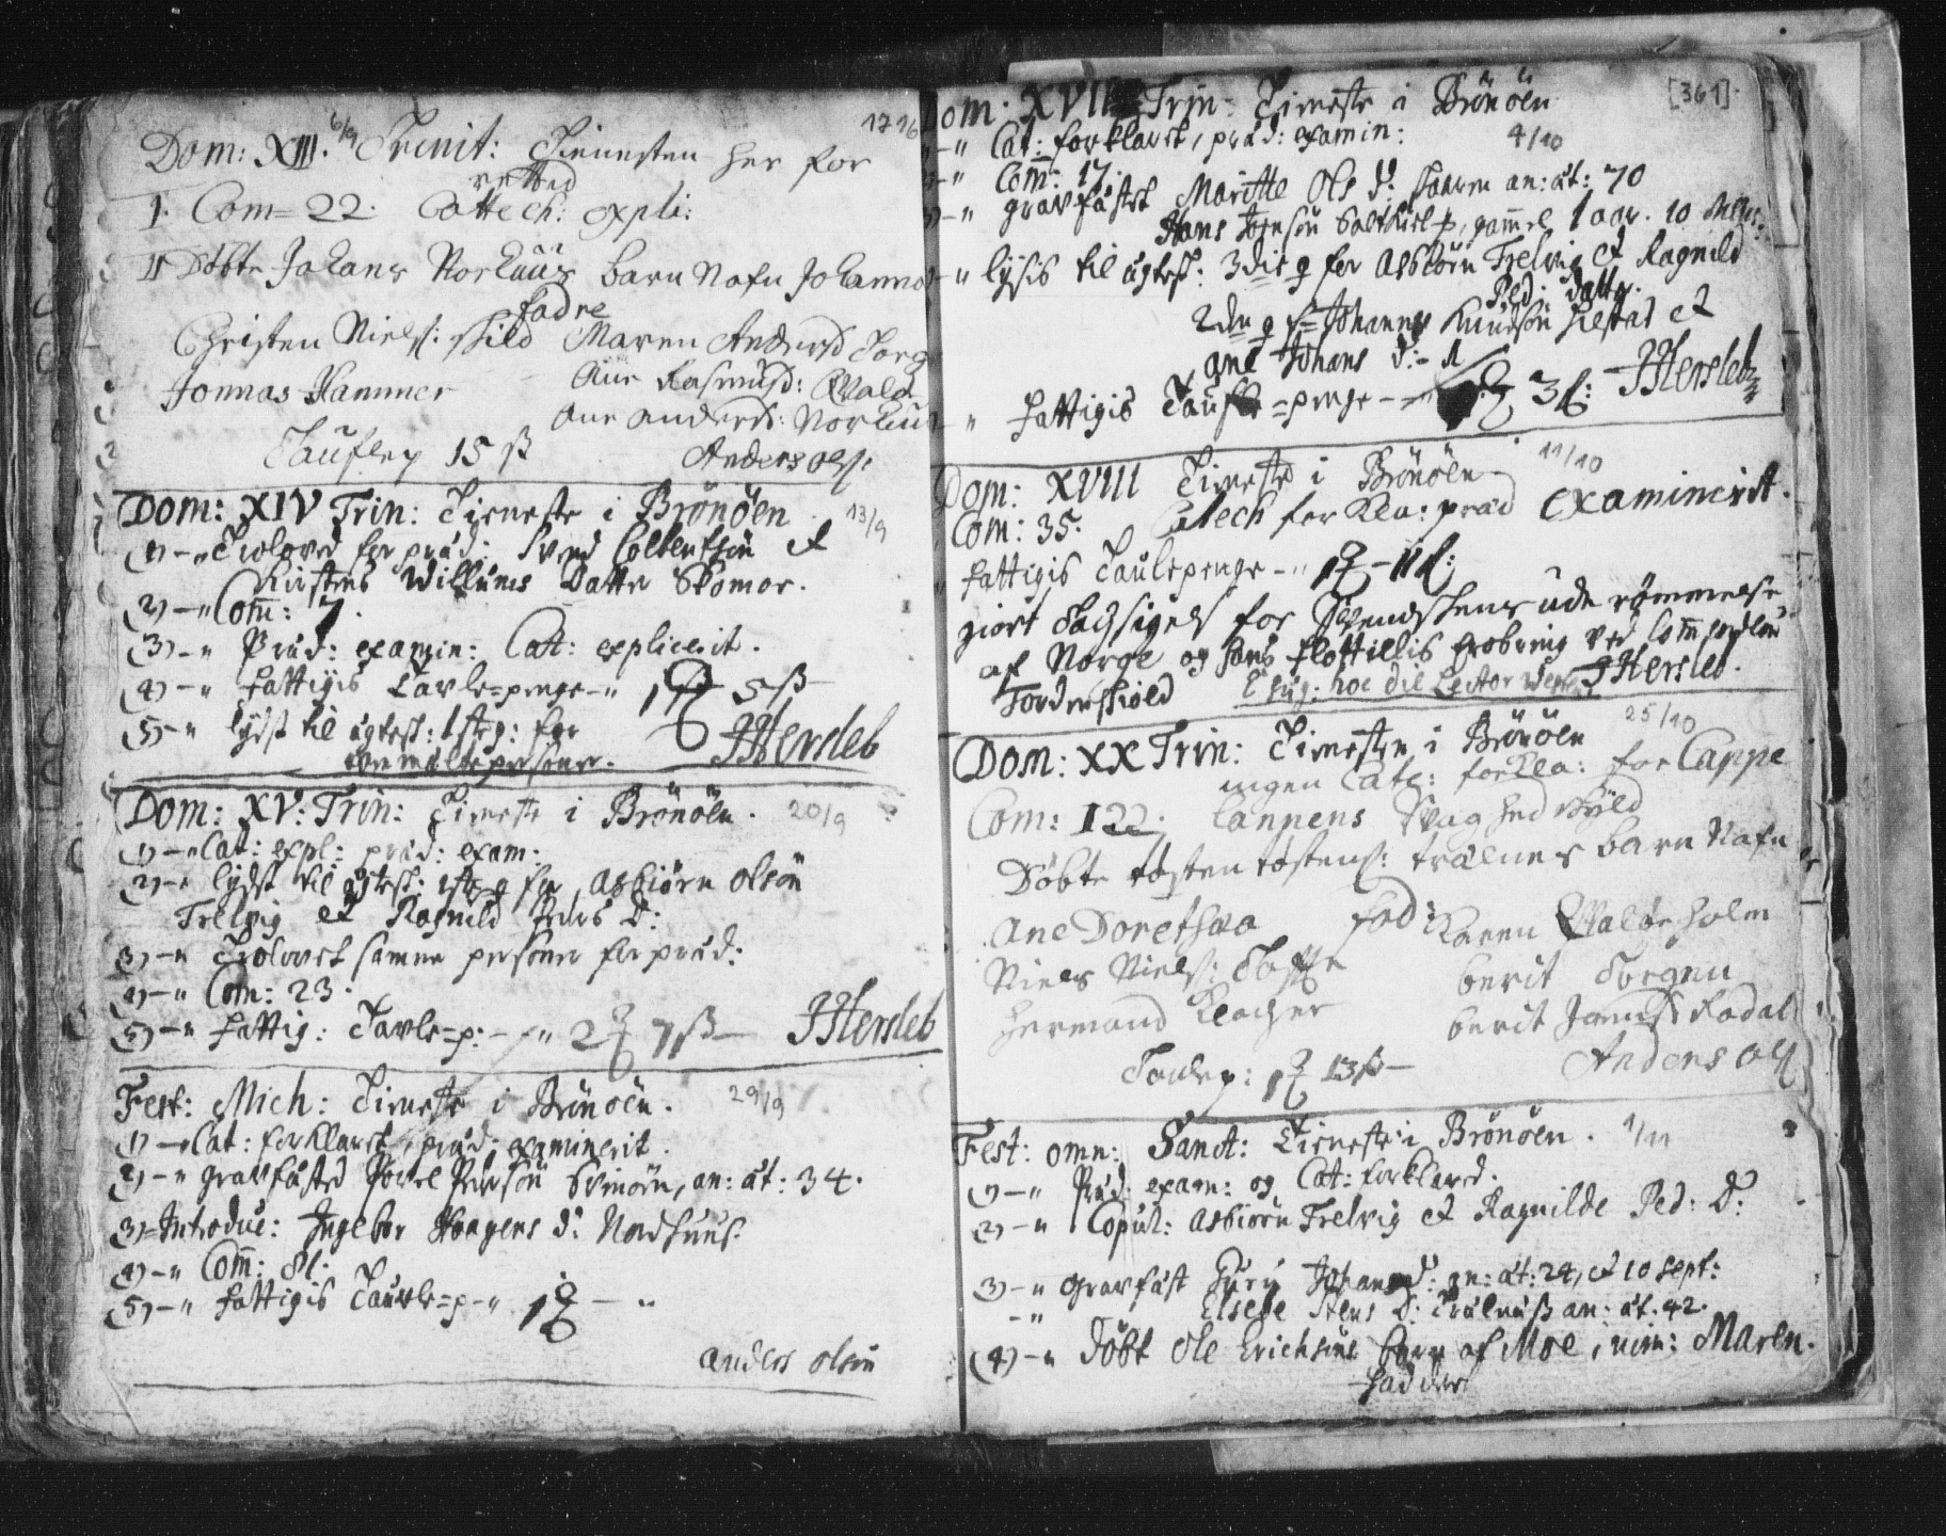 1716
Dom: XIII. 6/9 Trinit: Tienesten her for
retted
I. Com= 22. Cattech: expli:
II Döbte Johans Norhuus barn Nafn Johanna
fadre
Christen Niels: skild Maren Anders Torg
Jonnas Hammer Ane Rasmusd: Qvalø
Ane Anders: Norhuus
Taufle p 15 ß Anders Ols:
Dom: XIV Trin: Tieneste i Brönöen 13/9
(1)-" Troloved for præd: Svend et
Kirstens Willums Datter Skomoe.
(2)-" Com̄: 7.
(3)-" Præd: examin: Cat: explicerit.
(4)-" fattigis Tavle=penge-" 1 5 ß
(5)-" lydst til ægtesk: 1ste g: for
bemeldte personer. JHersleb
Dom: XV: Trin: Tieneste i Brönöen. 20/9
(1)-" Cat: expl: præd: exam:
(2)-" lydst til ægtesk: 1ste g for Asbiörn Olsön
Trelvig et Ragnild Peders D:
(3)-" Trolovet samme personer for præd:
(4)-" Com: 23.
(5)-" fattig: Tavle=p:-" 2 7 ß JHersleb
Fest: Mich: Tieneste i Brönöen. 29/9
(1)-" Cat: forklaret, præd: examinerit.
(2)-" gravfæsted Povel Persön Svinöen, an: æt: 34.
(3)= Introduc: Ingebor Haagens D: Nordhuus.
(4)-" Com̄: 81.
(5)-" fattigis Taufle=p-" 1 - "
Anders Olsön
[361]
Dom: XVII Trin- Tieneste i Brönöen
-" Cat: forklaret, præd: examin: 4/10
-" Com̄: 17.
-" gravfæstet Maritte Ols D: an: æt: 70
Hans Jensön, gam̄el 1 aar. 10
-" lysis til ægtesk: 3die g for Asbiörn Trelvig et Ragnild
Ped: Datter.
2den g f= Johannes Knudsön Tilstad et
Ane Johans D:
" fattigis Taufle=penge- 3 ß: JHersleb
Dom: XVIII Tieneste i Brönöen 11/10
Com: 35. Catech forkla: præd examinerit.
fattigis Taulepenge-" 1 - 11 ß:
giort Tachsigels for Svendskens ude rømmelse
af Norge og Hans flottillis erobring ved Com̄endeur
Tordenskiold JHersleb.
Dom: XX Trin: Tienesten i Brönöen 25/10
ingen Cate: forkla: for Cappe
Com: 122. lannens Svaghed skyld
Döbte tosten tostens: trælnes barn Nafn
Ane Dorethea fad: Karen Qvaløeholm
Niels Niels: Tofte berit Torgnen
Hermand Klocher berit Rodal
Taulep: 1 13 ß - Anders Ols
Fest: omn: Sanct: Tieneste i Brönöen. 1/11
(1)-" Præd: exam: og Cat: forklared.
(2)-" Copul: Asbiörn Trelvig et Ragnilde Ped: D:
(3)-" gravfæst Guri Johans d: an: æt: 24, et 10 sept:
-" Elsebe Stens D: Trælnæß an: æt. 42.
(4)-" döbt Ole Erichsöns barn af Moe, nom: Maren.
fadder